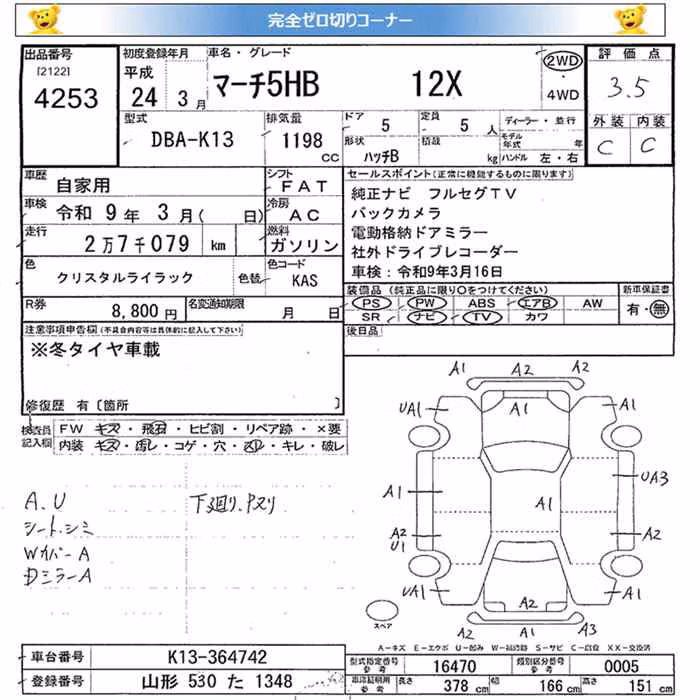 完全ゼロ切りコーナー
出品番号
[2122]
4253
初度登録年月
平成
24年 3月
車名・グレード
マーチ5HB 12X
2WD
・
4WD
評価点
3.5
外装 内装
C C
型式
DBA-K13
排気量
1198
CC
ドア 5
形状
ハッチB
定員 5 人
積載 kg
ディーラー・並行
モデル年式 年
ハンドル 左・右
車歴
自家用
シフト
FAT
車検 令和 9年 3月( 日)
冷房
AC
走行
2万7千079 km
燃料
ガソリン
色
クリスタルライラック
色替
色コード
KAS
R券
8,800円
名変通知期限 月 日
セールスポイント(正常に機能するものに限ります)
純正ナビ フルセグTV
バックカメラ
電動格納ドアミラー
社外ドライブレコーダー
車検:令和9年3月16日
装備品(純正品に限り○をつけてください)
新車保証書
PS PW ABS エアB AW
SR ナビ TV カワ
有・無
後日品
注意事項申告欄(不具合内容等は具体的に記入して下さい)
※冬タイヤ車載
修復歴 有〔箇所 〕
検査員記入欄
FW キズ・飛石・ヒビ割・リペア跡・×要
内装 キズ・汚レ・コゲ・穴・スレ・キレ・破レ
A.U
シート.シミ
Wカバー A
Dミラー A
下廻り.Pヌリ
A1 A2 A2
UA1 A1 A1
A1 A1 UA3
A2
U1
A2
UA1 A2 A1
A2 A1 A3
スペア
A-キズ E-エクボ U-凹み W-補修跡 S-サビ C-腐食 XX-交換済
車台番号 K13-364742
登録番号 山形 530 た 1348
型式指定番号
参考
16470
類別区分番号
参考
0005
車庫証明用
参考
長さ 378 cm 幅 166 cm 高さ 151 cm